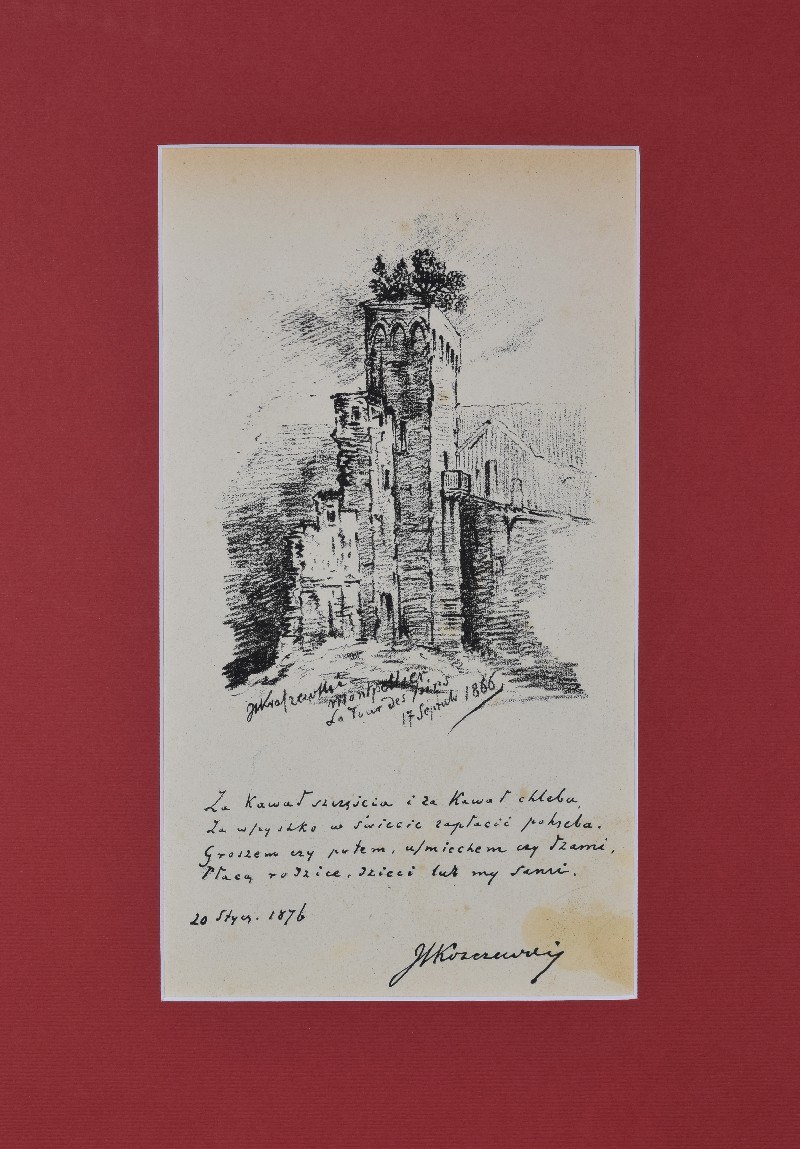 JIKraszewski
Montpellier.
La Tour des Pins
17 Septemb 1866
Za kawał szczęścia i za kawał chleba,
Za wszystko w świecie zapłacić potrzeba.
Groszem czy potem, uśmiechem czy łzami,
Płacą rodzice, dzieci lub my sami.
20 Stycz. 1876
JIKraszewski